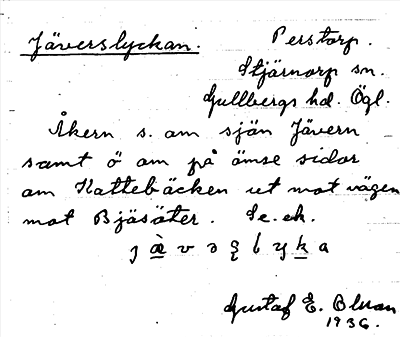 Jäverslyckan. Perstorp.
Stjärnorp sn.
Gullbergs hd. Ögl.
Åkern s. om sjön Jävern
samt ö om på ömse sidor
om Kattebäcken ut mot vägen
mot Bjäsäter. Se. ek.
Gustaf E. Olsson
1936.